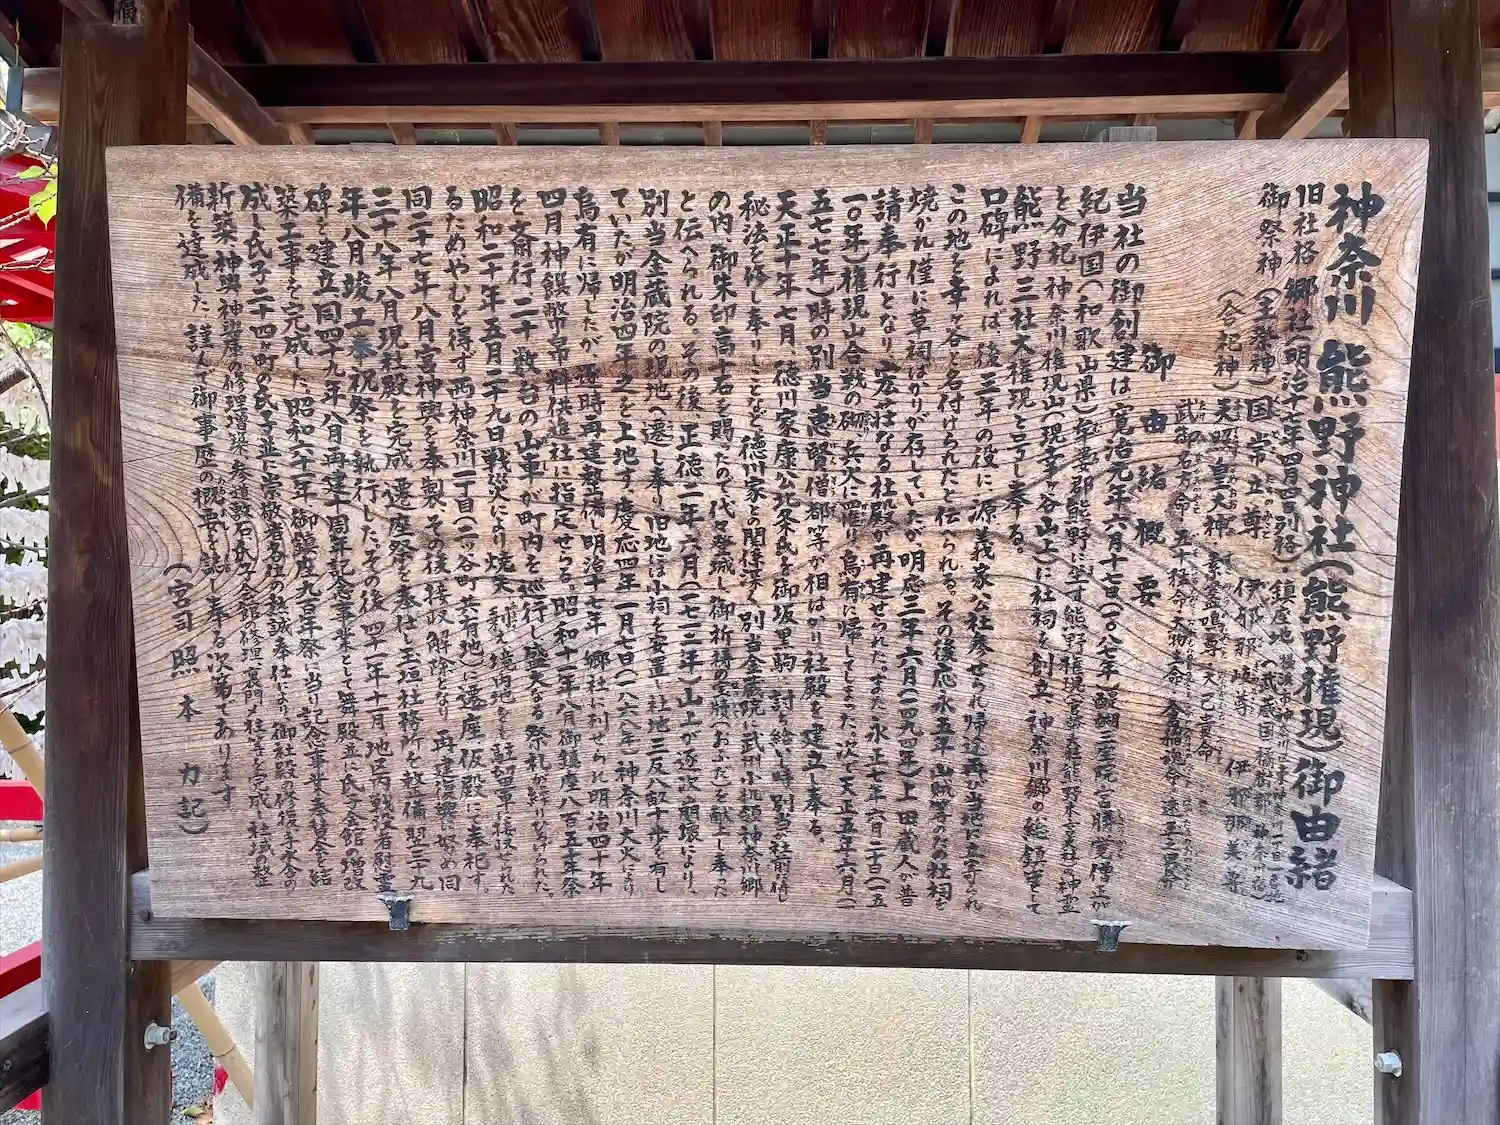 神奈川熊野神社(熊野権現)御由緒
旧社格 郷社(明治十七年四月四日列格) 鎮座地
御祭神(主祭神)国常立尊 伊邪那岐尊 伊邪那美尊
(合祀神)天照皇大神 素盞鳴尊 大己貴命
武御名方命 五十猛命
御由緒概要
当社の御創建は寛治元年六月十七日(一〇八七年)醍醐三宝院宮勝覚僧正が
紀伊国(和歌山県)牟婁郡熊野に坐す熊野権現
を分祀、神奈川権現山(現幸ヶ谷山上)に社祠を創立、神奈川郷の総鎮守として
熊野三社大権現と号し奉る。
口碑によれば、後三年の役に、源義家公社参せられ帰途再び当地に立寄られ
この地を幸ヶ谷と名付けられたと伝へられる。その後応永五年、山賊等のため社祠を
焼かれ僅に草祠ばかりが存していたが、明応三年六月(一四九四年)上田蔵人が普
請奉行となり、宏壮なる社殿が再建せられた。また永正七年六月二十日(一五
一〇年)権現山合戦の砌、兵火に罹り烏有に帰してしまった。次で天正五年六月(一
五七七年)時の別当恵賢僧都等が相はかり社殿を建立し奉る。
天正十年七月、徳川家康公北条氏を御坂黒駒に討を給し時、別当が社前に於て
秘法を修し奉りしことなど、徳川家との関係深く、別当金蔵院に武州小机領神奈川郷
の内、御朱印高十石を賜ったので、代々登城し御祈祷の宝牘(おふだ)を献上し奉った
と伝へられる。その後、正徳二年六月(一七一二年)山上が逐次崩壊により、
別当金蔵院の現地へ遷し奉り、旧地には小祠を安置、社地三反八畝十歩を有し
ていたが明治四年之を上地す。慶応四年一月七日(一八六八年)神奈川大火により
烏有に帰したが、逐時再建整備し明治十七年郷社に列せられ明治四十年
四月神饌幣帛料供進社に指定せらる。昭和十一年八月御鎮座八百五十年祭
を斎行、二十数台の山車が町内を巡行し盛大なる祭礼が繰りひろげられた。
昭和二十年五月二十九日戦災により焼失、剰え境内地をも駐留軍に接収された
るためやむを得ず西神奈川一丁目(二ッ谷町共有地)に遷座、仮殿にて奉祀す。
同二十七年八月宮神輿を奉製、その後接収解除となり、再建復興に努め同
三十八年八月現社殿を完成、遷座祭を奉仕、玉垣社務所を整備、翌三十九
年八月竣工奉祝祭を執行した。その後四十一年十一月地区内戦没者慰霊
碑を建立、同四十九年八月再建十周年記念事業として舞殿並に氏子会館の増改
築工事を完成した。昭和六十一年御鎮座九百年祭に当り記念事業奉賛会を結
成し氏子二十四ヶ町の氏子並に崇敬者各位の熱誠奉仕により、御社殿の修復、手水舎の
新築、神輿神輿庫の修理増築、参道敷石、氏子会館修理、裏門〆柱等を完成し社域の整
備を達成した。謹んで御事歴の概要を誌し奉る次第であります。
(宮司 照本 力 記)